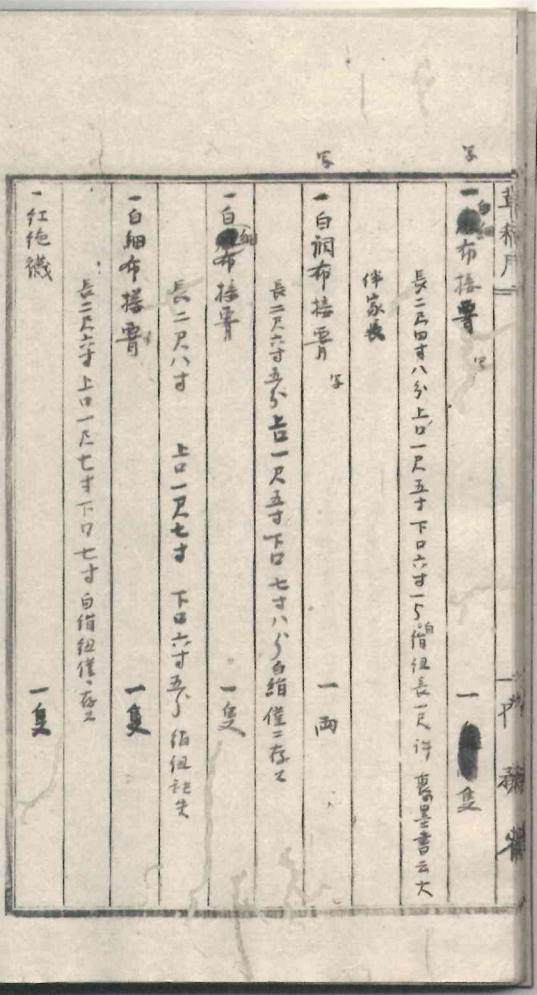 写 写
一白細布接腰 写 一 隻
長二尺四寸八分 上口一尺五寸 下口六寸一分 白絹紐長一尺許 裏墨書云大
伴家長
一白調布接腰 写 一両
長二尺六寸五分 上口一尺五寸 下口七寸八分 白絹僅ニ存ス
一白細布接腰 一隻
長二尺八寸 上口一尺七寸 下口六寸五分 絹紐 失
一白細布接腰 一隻
長二尺六寸 上口一尺七寸 下口七寸 白絹紐僅ニ存ス
一紅絁襪 一隻